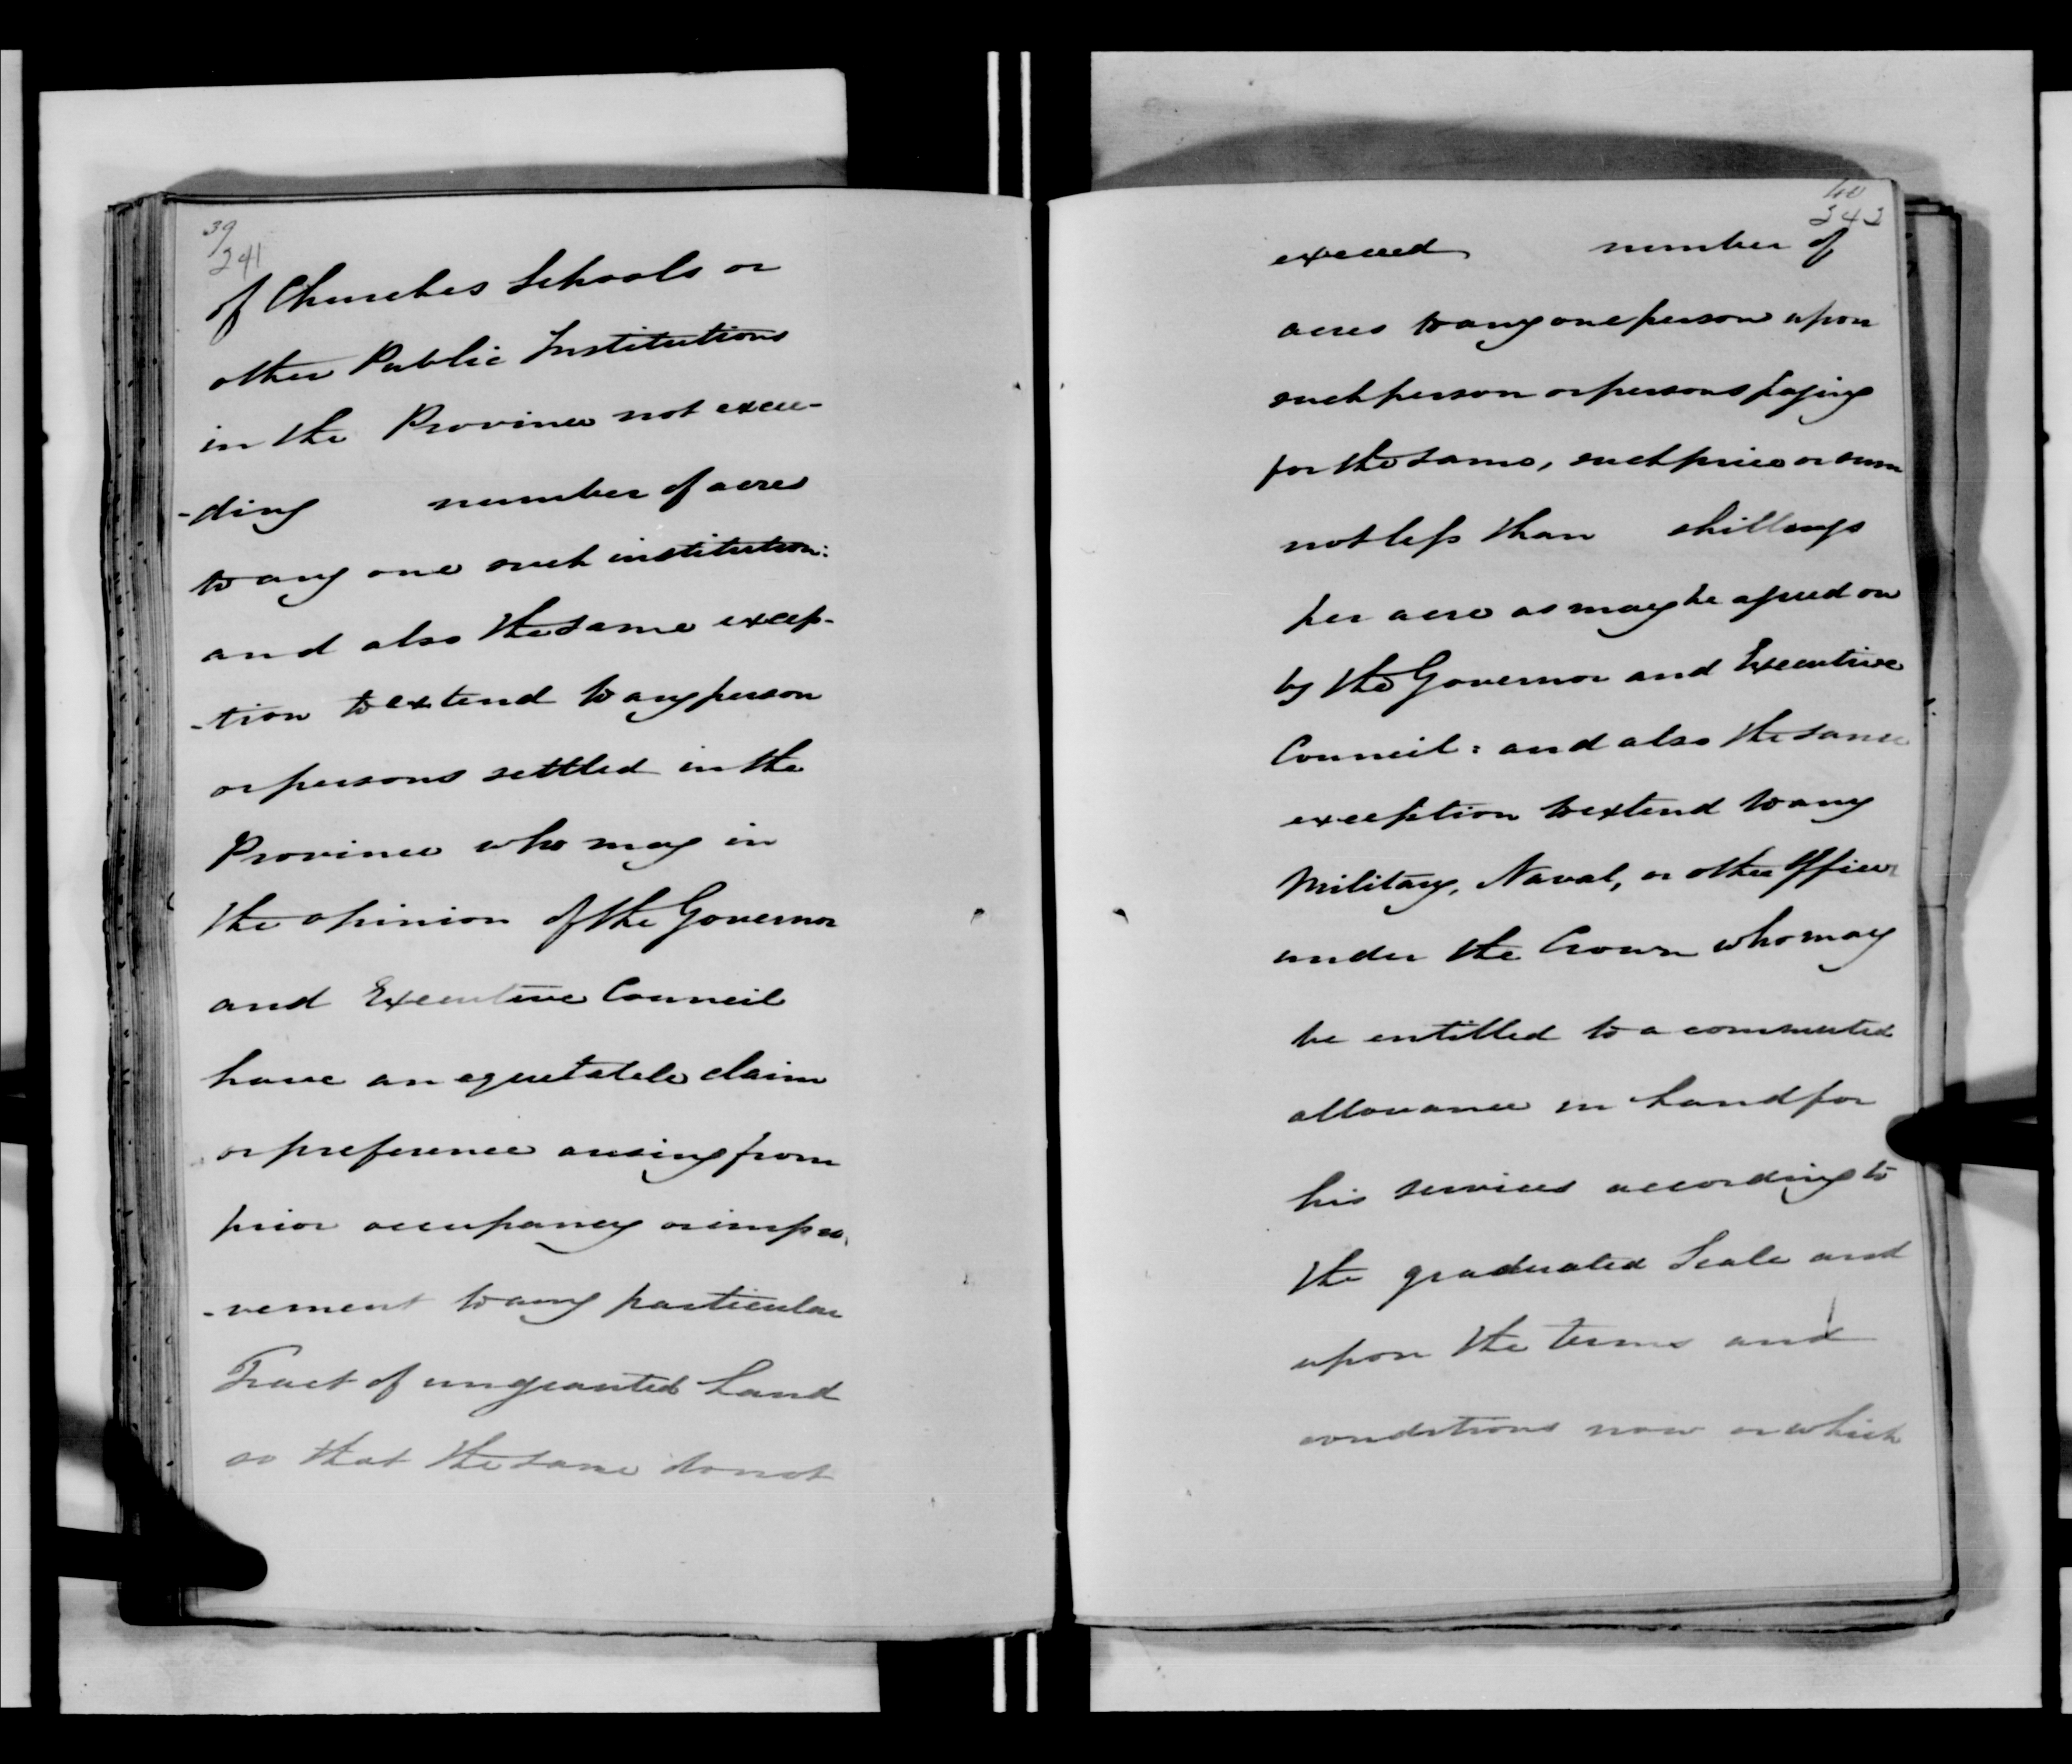 39
241
of Churches Schools or
other Public Institutions
in the Province not excee-
-ding number of acres
to any one such institution:
and also the same excep-
-tion to extend to any person
or persons settled in the
Province who may in
the opinion of the Governor
and Executive Council
have an equitable claim
or preference arising from
prior occupancy or impro-
-vement to any particular
Tract of ungranted Land
so that the same do not
40
242
exceed number of
acres to any one person upon
such person or persons paying
for the same, such price or sum
not less than shillings
per acre as may be agreed on
by the Governor and Executive
Council: and also the same
exception to extend to any
Military, Naval, or other Officer
under the Crown who may
be entitled to a commuted
allowance in Land for
his services according to
the graduated Scale and
upon the terms and
conditions now or which